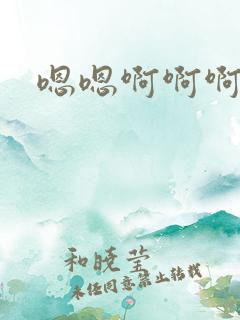 嗯嗯啊啊啊
和晓莹
未经同意禁止转载